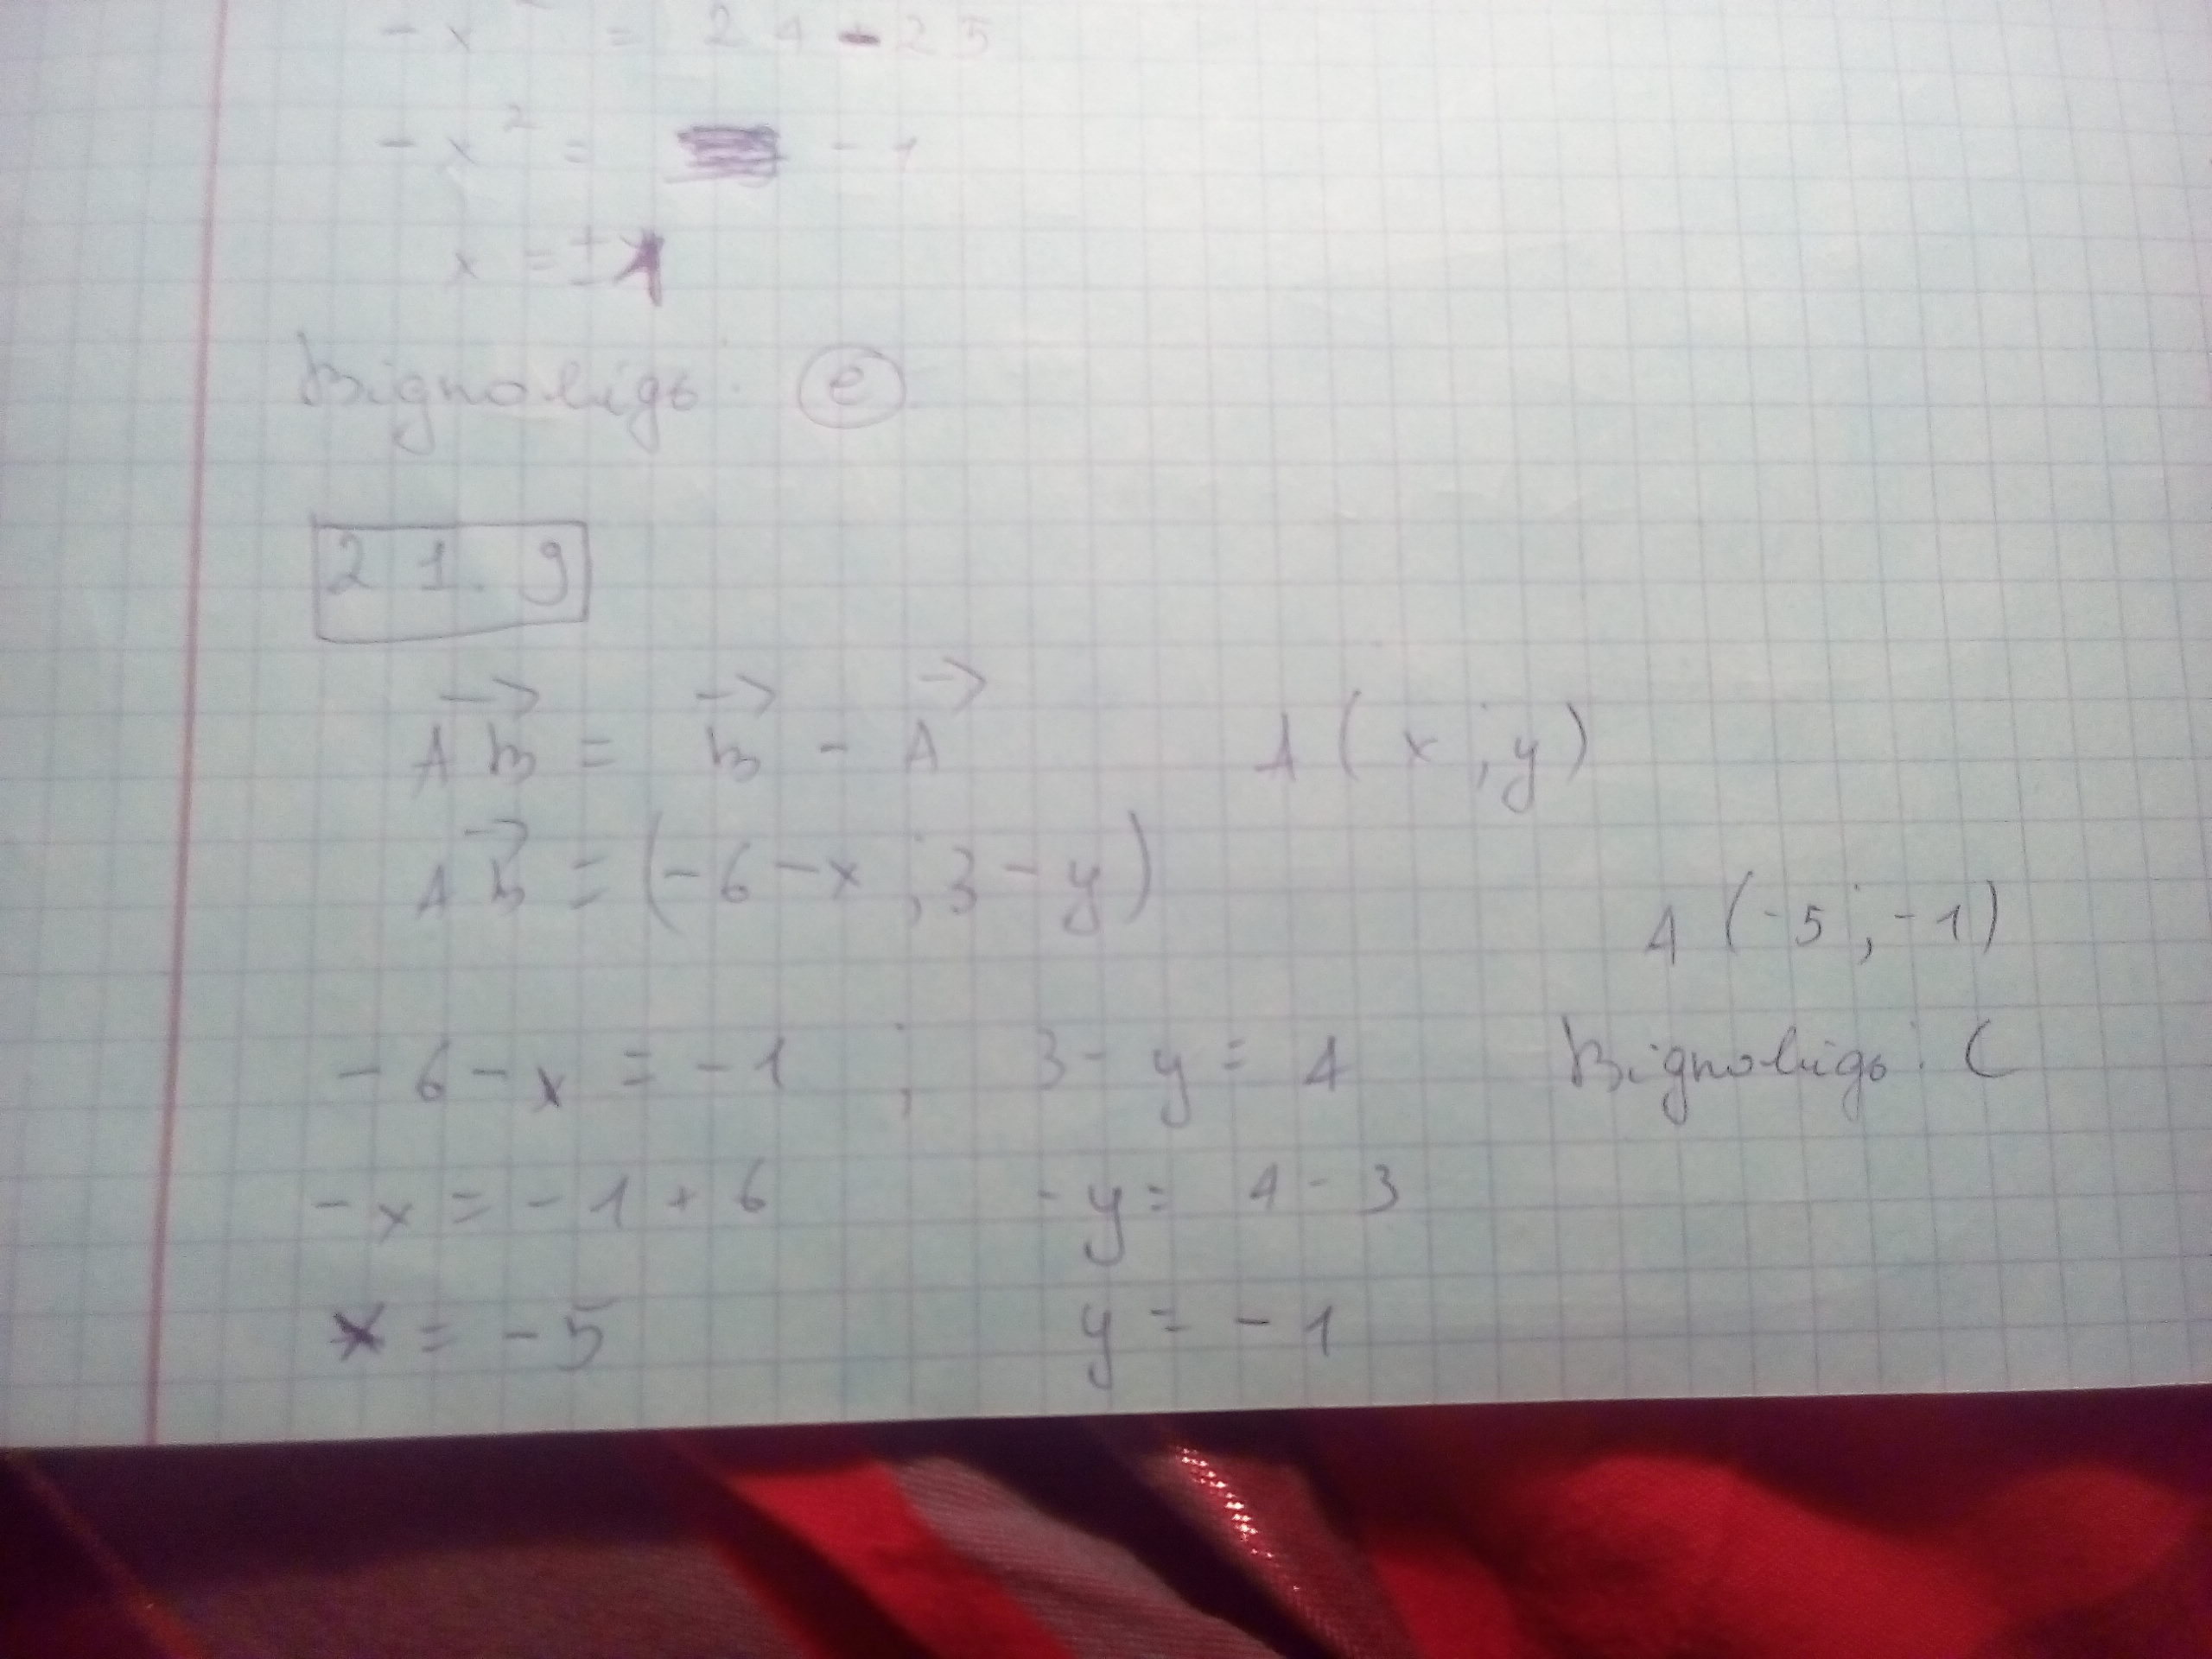 - x² = 24 - 25
- x² = - 1
x = ± 1
Відповідь: e
21. 9
→AB = →B - →A A(x; y)
→AB = (-6-x; 3-y)
A(-5; -1)
-6-x = -1; 3-y = 4 Відповідь: C
-x = -1+6 -y = 4-3
x = -5 y = -1